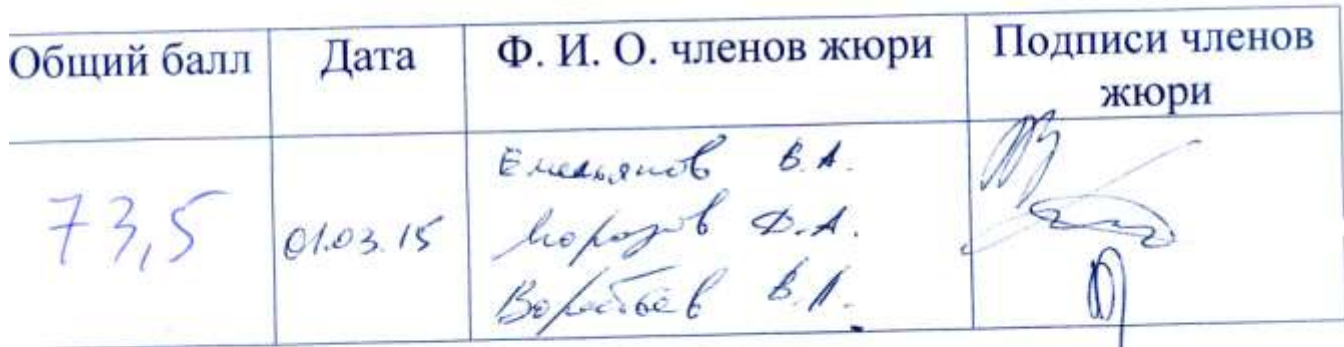 Общий балл Дата Ф. И. О. членов жюри Подписи членов жюри
73,5 01.03.15 Емельянов В.А.
Морозов Д.А.
Воробьёв В.Л.